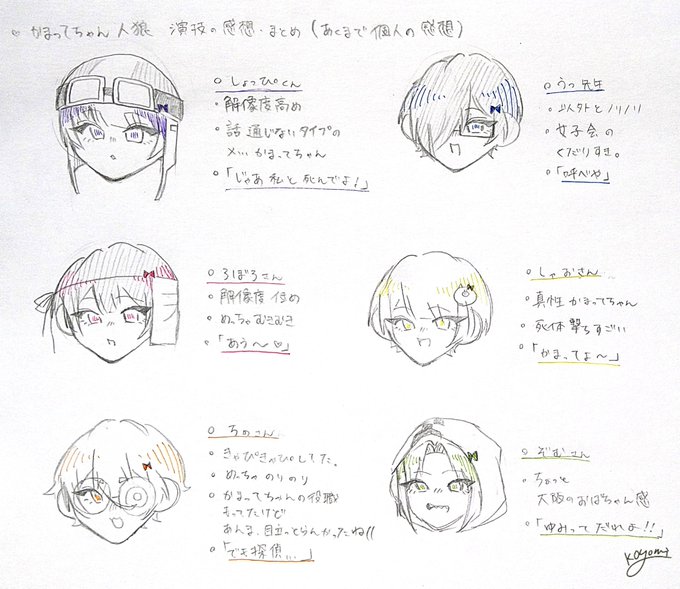 ♡ かまってちゃん人狼 演技の感想・まとめ（あくまで個人の感想）
○ しょっぴくん
・解像度高め
・話通じないタイプの
メ… かまってちゃん
・「じゃあ私と死んでよ！」
○ うつ先生
・以外とノリノリ
・女子会の
くだりすき。
・「呼べや」
○ ろぼろさん
・解像度低め
・めっちゃむきむき
・「あう〜♡」
○ しゃおさん
・真性かまってちゃん
・死体撃ちすごい
・「かまってよ〜」
○ ちのさん
・きゃぴきゃぴしてた。
・めっちゃのりのり
・かまってちゃんの役職
もってたけど
あんま、目立っとらんかったね((
・「でも探偵…」
○ ぞむさん
・ちょっと
大阪のおばちゃん感
・「ゆみってだれよ!!」
Koyomi